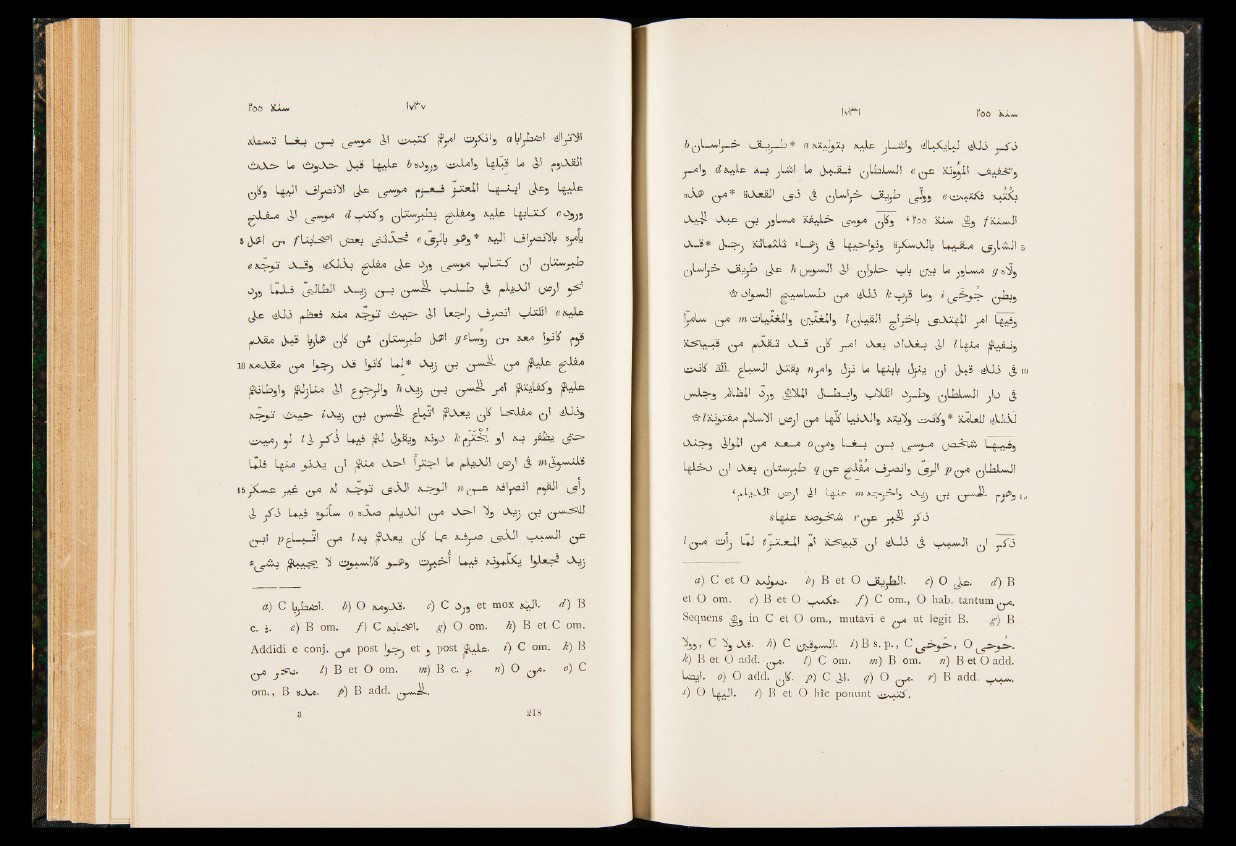 ١٧٣٦ سنة ٢٥٥
ذكر ذلك لبايكباك وأشار عليه بتوليته a *طريف خراسان b
وتخفيف المؤونة عن c السلطان فقبل ما أشار به عليه d وأمر
بكتبه فكتبت e وولى طريف خراسان فى ذى القعدة *من هذه
السنة f وفى سنة ٢٥٥، وكان موسى خليفة مساور بن عبد الحميد
5 الشارى مقيما بالدسكرة ونواحيها فى زهاء ثلثمائة رجل *قد
ولاه g مساور ما بين باب حلوان الى السوس h على طريق خراسان
وبطن جوخى i وما قرب k من ذلك من طساسيج السواد ✩
وفيها امر المهتدى باخراج القيان l والمغنين والمغنيات m من سامرا
ونفيهم منها l الى بغداد بعد امر كان قد تقدم من قبيحة
10 فى ذلك قبل ان ينزل بابنها ما نزل وامر n بقتل السباع التى كانت
فى دار السلطان وطرد الكلاب وابطال الملاهى ورد المظالم وجلس
لذلك للعامة *وكانت ولايته والدنيا كلها من ارض الاسلام مفتونة l ✩
وفيها شخص موسى بن بغا ومن o معه من الموالى وجند
السلطان من p الرى وانصرف مفلح عن q طبرستان بعد ان دخلها
15 وهزم الحسن بن زيد واخرجه m عنها الى ارض الديلم،
ذكر الخبر عن r شخوصه عنها s
ذكر ان السبب فى ذلك ان قبيحة ام المعتز t لما رأت من l
a) C et O بتوليه. b) B et O الطريف. c) O على. d) B
et O om. e) B et O فكتب. f) C om., O hab. tantum من.
Sequens وفى in C et O om., mutavi e من ut legit B. g) B
وولا, C قد ولا. h) C السوقين. i) B s. p., C جوخى, O جوحى.
k) B et O add. من. l) C om. m) B om. n) B et O add.
ايضا. o) O add. كان. p) C الى. q) O من. r) B add. سبب.
s) O اليها. t) B et O hîc ponunt كتبت.
١٧٣٧ سنة ٢٥٥
الاتراك اضطرابا a وانكرت امرهم كتبت الى موسى بن بغا تسعله
القدوم الى ما قبلها واملت وروده b عليها قبل حدوث ما حدث
عليها وعلى ابنها المعتز فعزم موسى على الانصراف اليها وكان
ورود c كتابها عليه ومفلح بطبرستان وكتب d موسى الى مفلح
5 يأمره بالانصراف اليه *وهو بالرى e فحدثنى بعض اصحابنا f من اهل
طبرستان ان كتاب موسى ورد على مفلح بذلك وقد توجه e
نحو ارض الديلم فى طلب الحسن بن زيد الطالبى فلما ورد
عليه e الكتاب انصرف راجعا الى حيث توجه منه فعظم ذلك على
قوم كانوا معه من رؤساء g اهل طبرستان ممن كان هاربا قبل مقدم
10 مفلح عليهم من الحسن بن زيد *لما كانوا قد رجوا من مقدمه
عليهم وكفايتهم امر الحسن بن زيد h والرجوع الى منازلهم واوطانهم
وذلك ان مفلحا كان يعدهم اتباع الحسن بن زيد i حيث توجه
حتى يظفر به او يخترم k دونه ويقول لهم فيما ذكر لى l لو رميت
قلنسوتى m فى ارض الديلم ما اجترأ احد منهم ان يدنو منها فلما
15 رأى القوم انصرافه عن n الوجه الذى توجه له من غير عسكر
للحسن بن زيد ولا احد من الديلم صده o سألوه فيما ذكر لى
عن السبب الذى صرفه عما كان يعدهم به l من اتباع p ابن
زيد فجعلوا يكلمونه فيما أخبرت وهو كالمسبوت لا يجيبهم بشىء
a) C اضطربا. b) O قدومه. c) C ورد et mox اليه. d) B
c. ف. e) B om. f) C اصحابه. g) O om. h) B et C om.
Addidi e conj. من post رجوا et و post عليهم. i) C om. k) B
من. l) B et O om. m) B c. ب. n) O من. o) C
om., B صده. p) B add. الحسن.
218